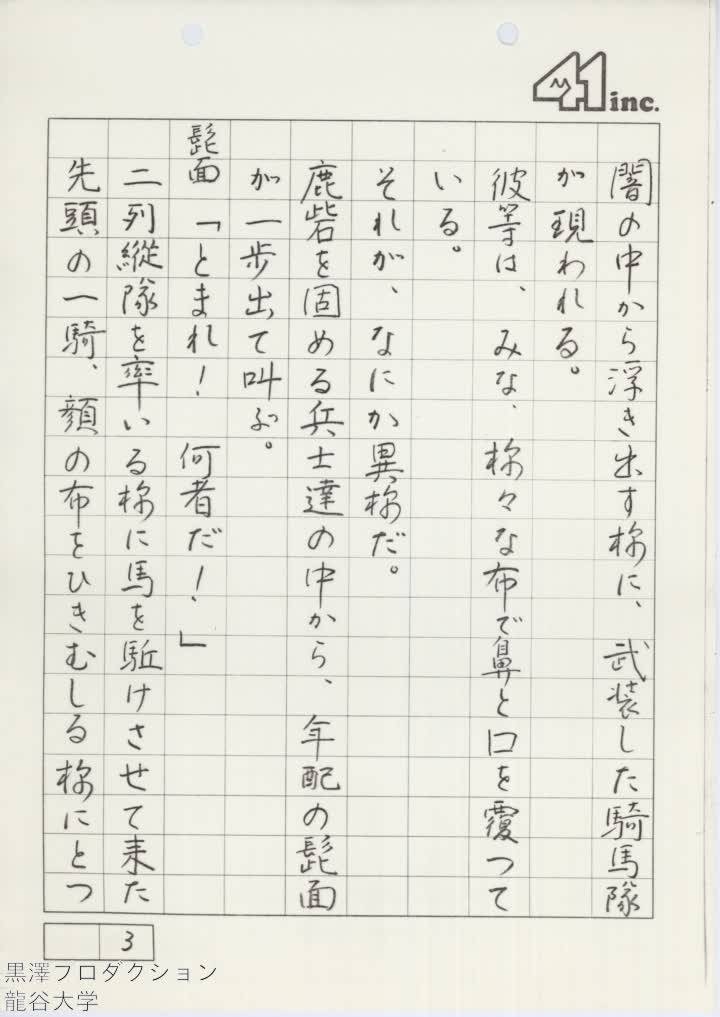 41 inc.
闇の中から浮き出す様に、武装した騎馬隊
が現われる。
彼等は、みな、様々な布で鼻と口を覆つて
いる。
それが、なにか異様だ。
鹿砦を固める兵士達の中から、年配の髭面
が一歩出て叫ぶ。
髭面「とまれ！何者だ！」
二列縦隊を率いる様に馬を駈けさせて来た
先頭の一騎、顔の布をひきむしる様にとつ
3
黒澤プロダクション
龍谷大学